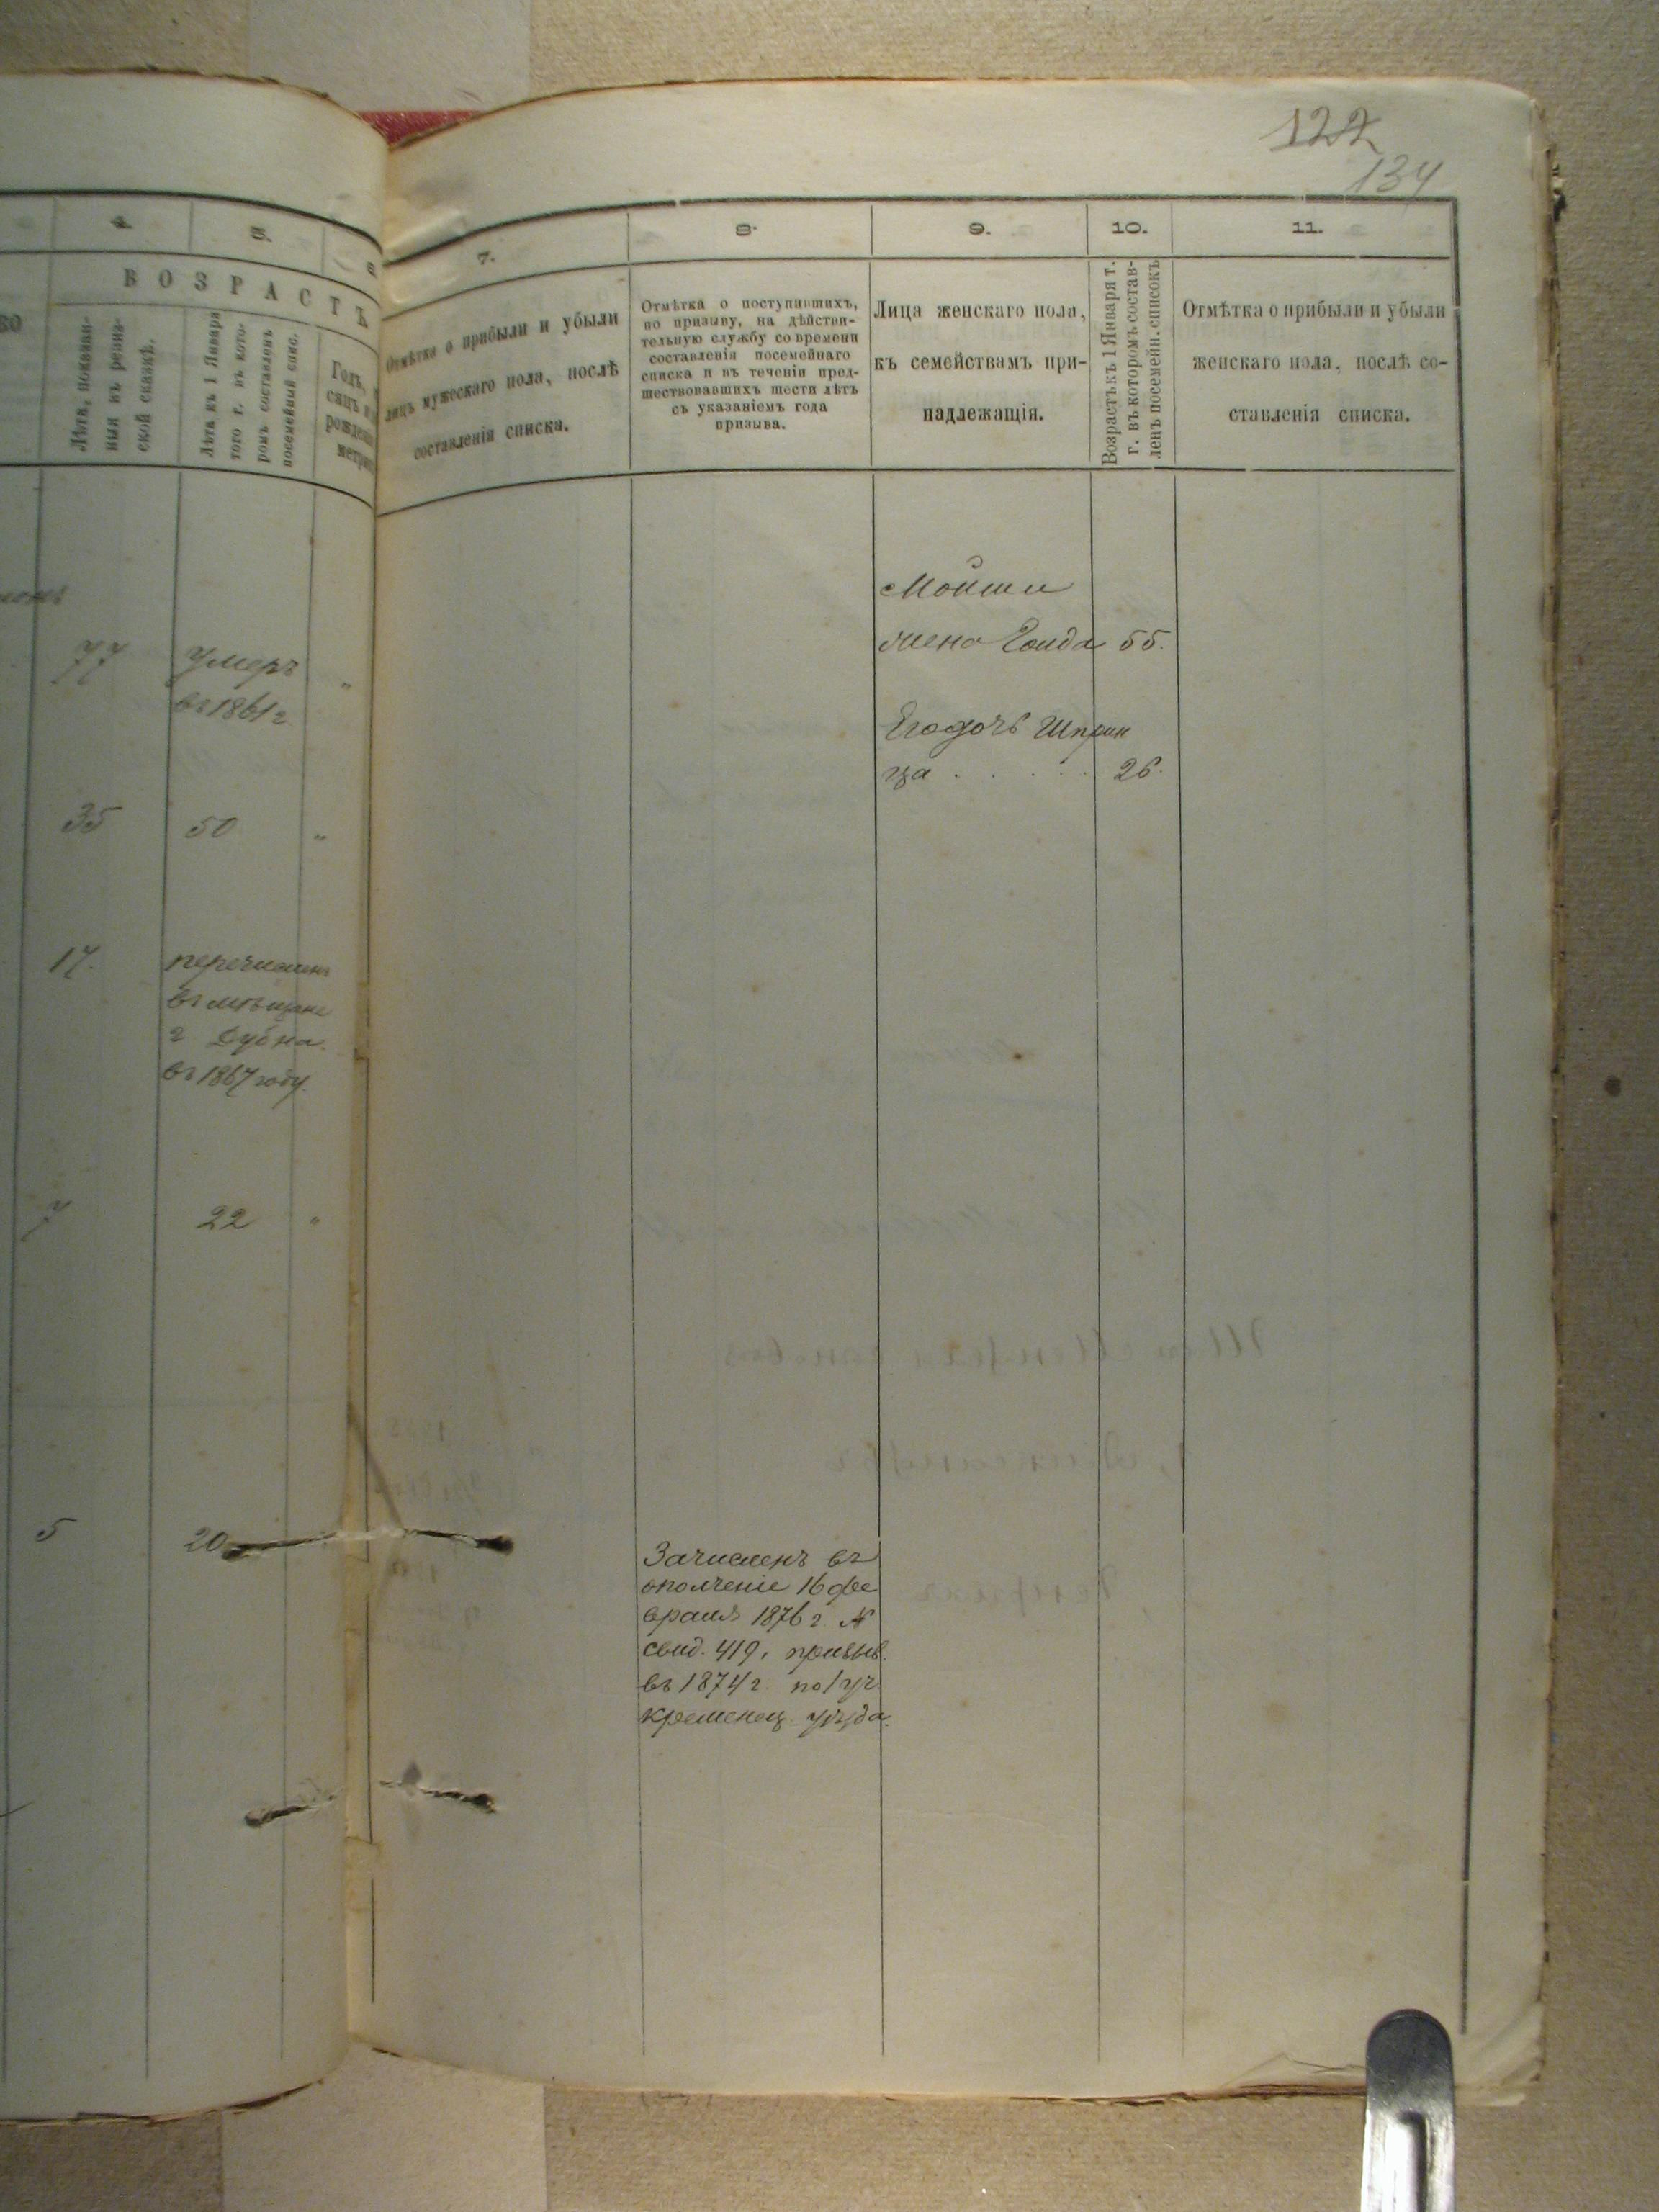 122
134
4.
5.
6
ВОЗРАСТЪ
Лѣта, показан-
ныя въ ревиз-
ской сказкѣ.
Лѣта къ 1 Января
того г. въ кото-
ромъ составленъ
посемейный спис.
Годъ,
рожден
метрич
77
Умеръ
въ 1861 г.
"
35
50
"
17.
перечисленъ
въ мѣщане
г Дубна.
въ 1867 году.
7
22
"
5
20
7.
8.
9.
10.
11.
Отмѣтка о прибыли и убыли
лицъ мужескаго пола, послѣ
составленія списка.
Отмѣтка о поступившихъ,
по призыву, на дѣйстви-
тельную службу со времени
составленія посемейнаго
списка и въ теченіи пред-
шествовавшихъ шести лѣтъ
съ указаніемъ года
призыва.
Лица женскаго пола,
къ семействамъ при-
надлежащія.
Возрастъ къ 1 Января т.
г. въ которомъ состав-
ленъ посемейн. списокъ
Отмѣтка о прибыли и убыли
женскаго пола, послѣ со-
ставленія списка.
Мойши
жена Голда 55.
Его дочь Шприн
ца . . . . . 26.
Зачисленъ въ
ополченіе 16 фе
враля 1876 г. №
свид. 419, призыв.
въ 1874 г. по 1 уч.
Кременец. уѣзда.